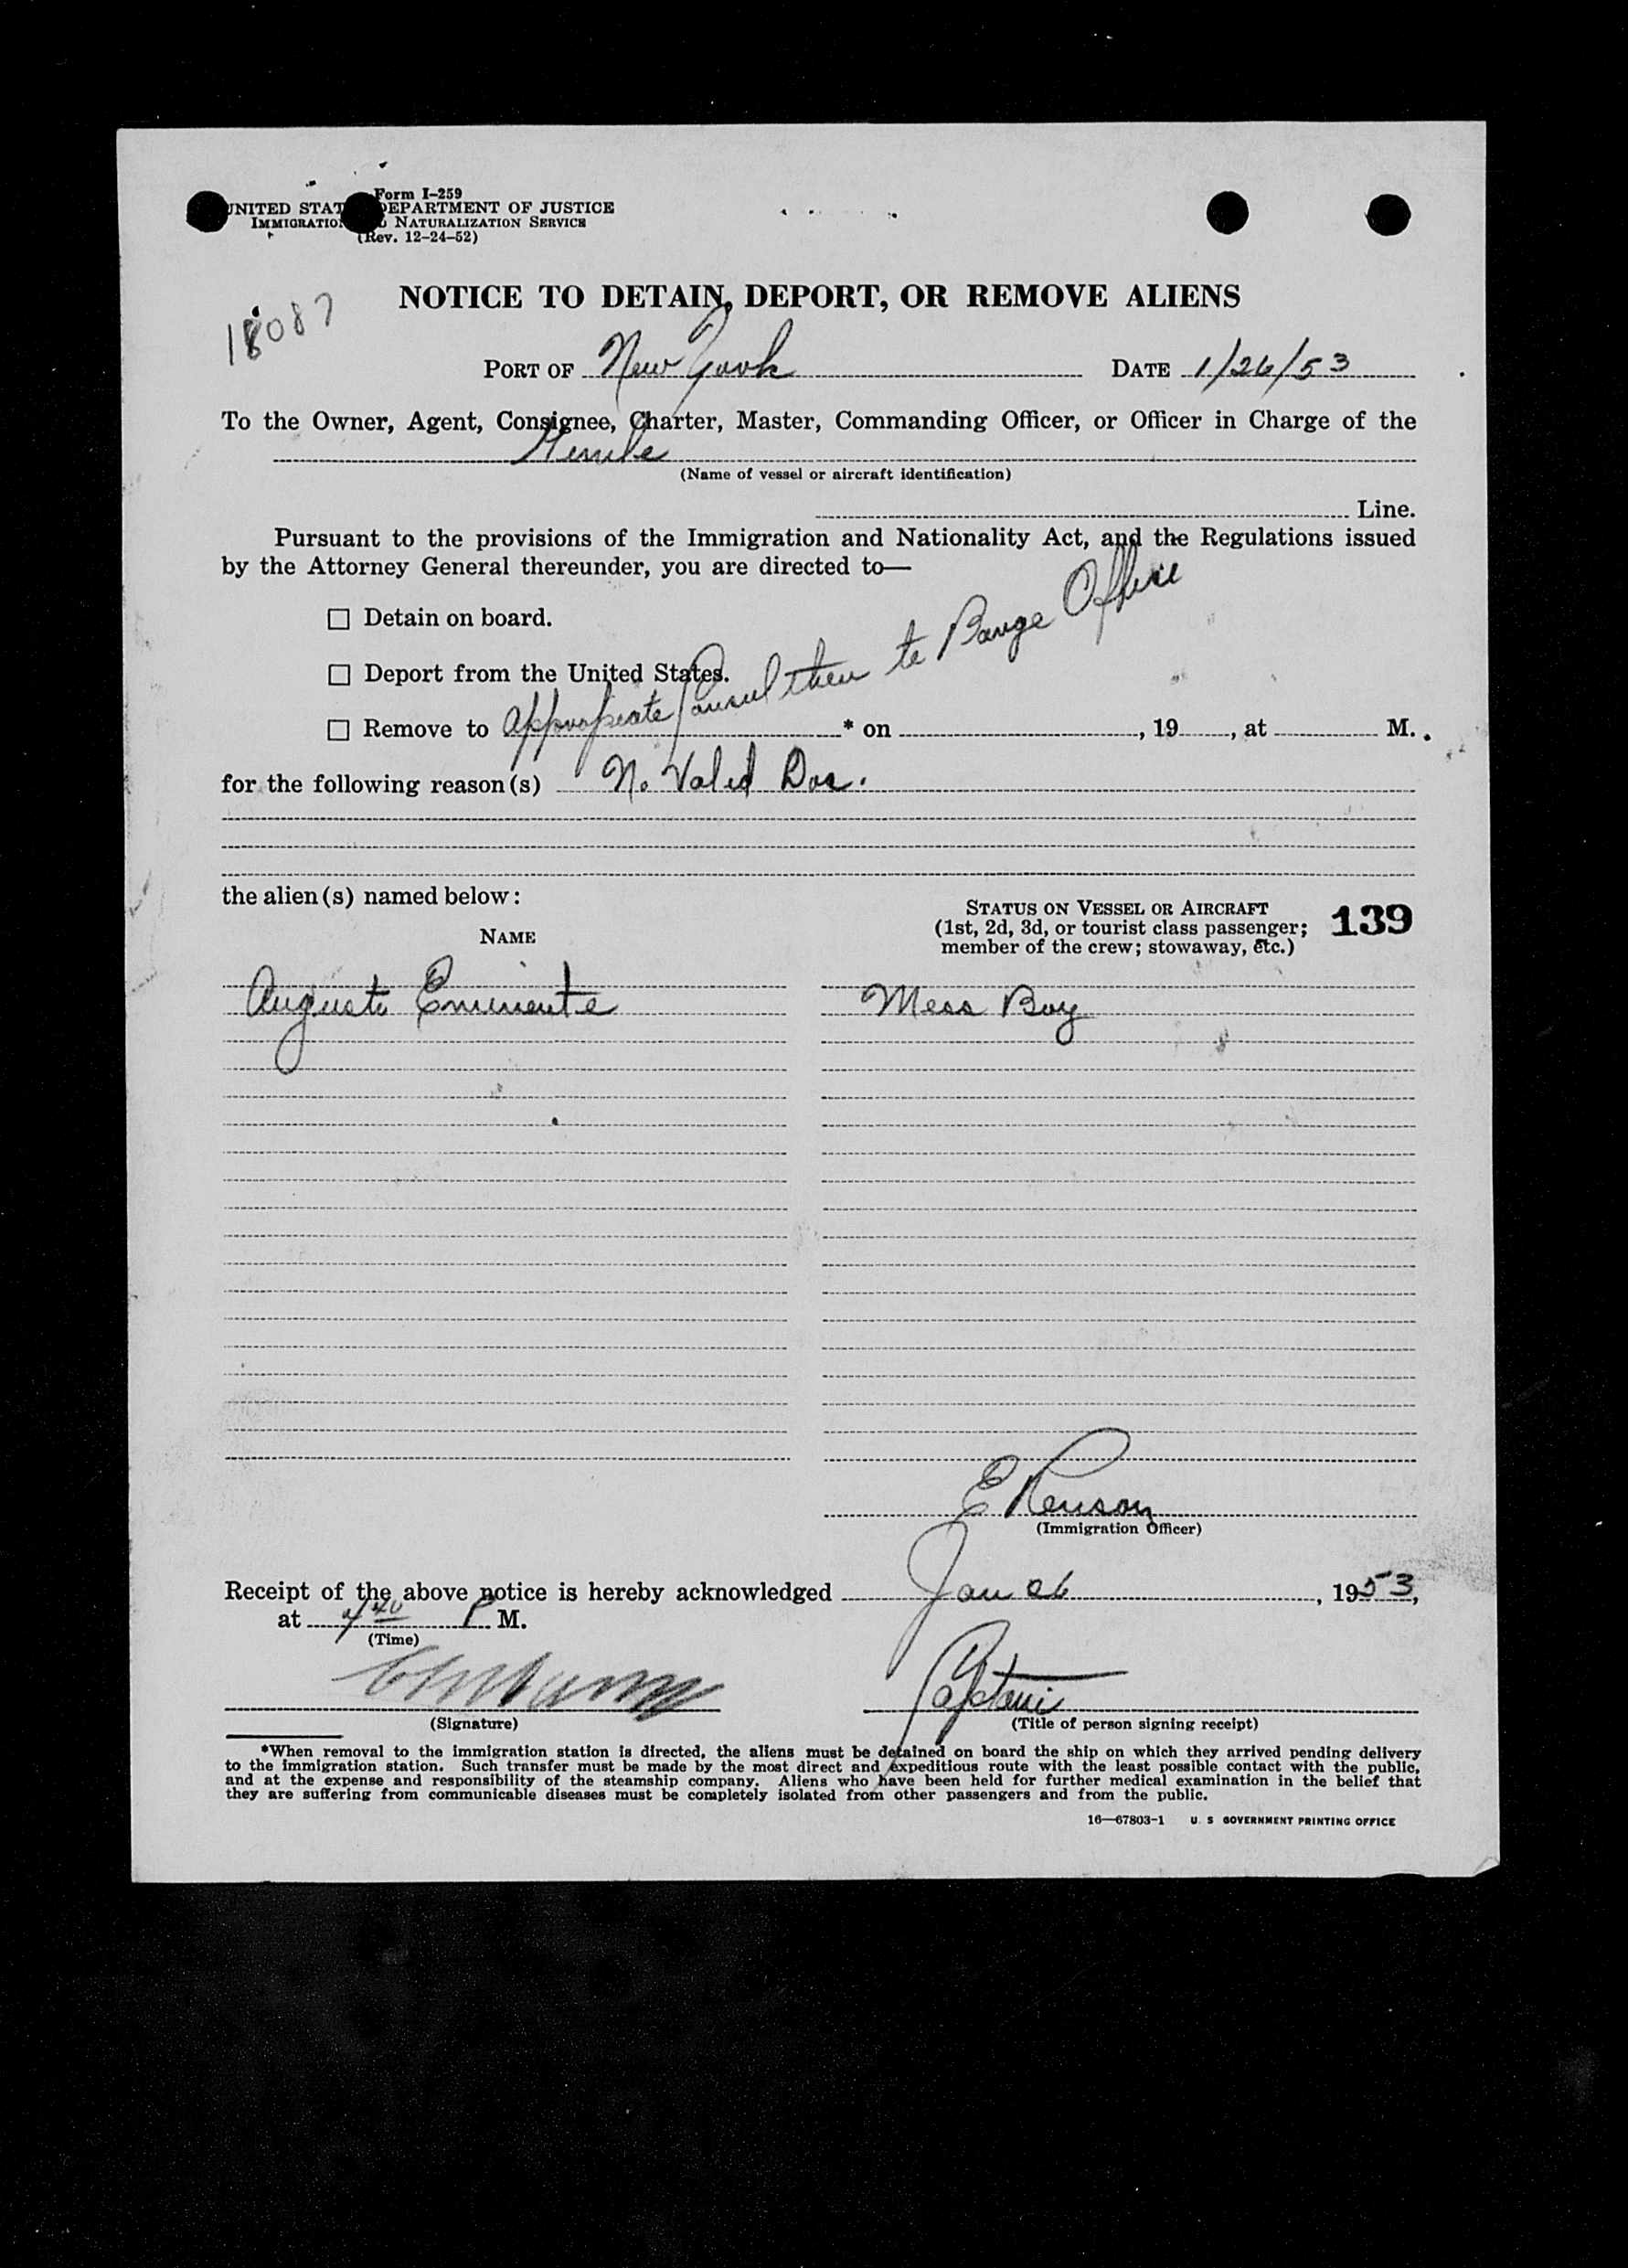 Form I-259
UNITED STAT DEPARTMENT OF JUSTICE
IMMIGRATIO NATURALIZATION SERVICE
(Rev. 12-24-52)
NOTICE TO DETAIN, DEPORT, OR REMOVE ALIENS
18087
PORT OF New York DATE 1/26/53
To the Owner, Agent, Consignee, Charter, Master, Commanding Officer, or Officer in Charge of the
(Name of vessel or aircraft identification)
Line.
Pursuant to the provisions of the Immigration and Nationality Act, and the Regulations issued
by the Attorney General thereunder, you are directed to—
☐ Detain on board.
☐ Deport from the United States.
☐ Remove to appropriate Consul then to Barge Office * on , 19 , at M.
for the following reason(s) No Valid Doc.
the alien(s) named below:
NAME
STATUS ON VESSEL OR AIRCRAFT
(1st, 2d, 3d, or tourist class passenger;
member of the crew; stowaway, etc.)
139
Augusto Eminente Mess Boy
E
(Immigration Officer)
Receipt of the above notice is hereby acknowledged Jan 26, 1953,
at 4 40 P M.
(Time)
Captain
(Signature)
(Title of person signing receipt)
*When removal to the immigration station is directed, the aliens must be detained on board the ship on which they arrived pending delivery
to the immigration station. Such transfer must be made by the most direct and expeditious route with the least possible contact with the public,
and at the expense and responsibility of the steamship company. Aliens who have been held for further medical examination in the belief that
they are suffering from communicable diseases must be completely isolated from other passengers and from the public.
16—67803-1 U. S GOVERNMENT PRINTING OFFICE